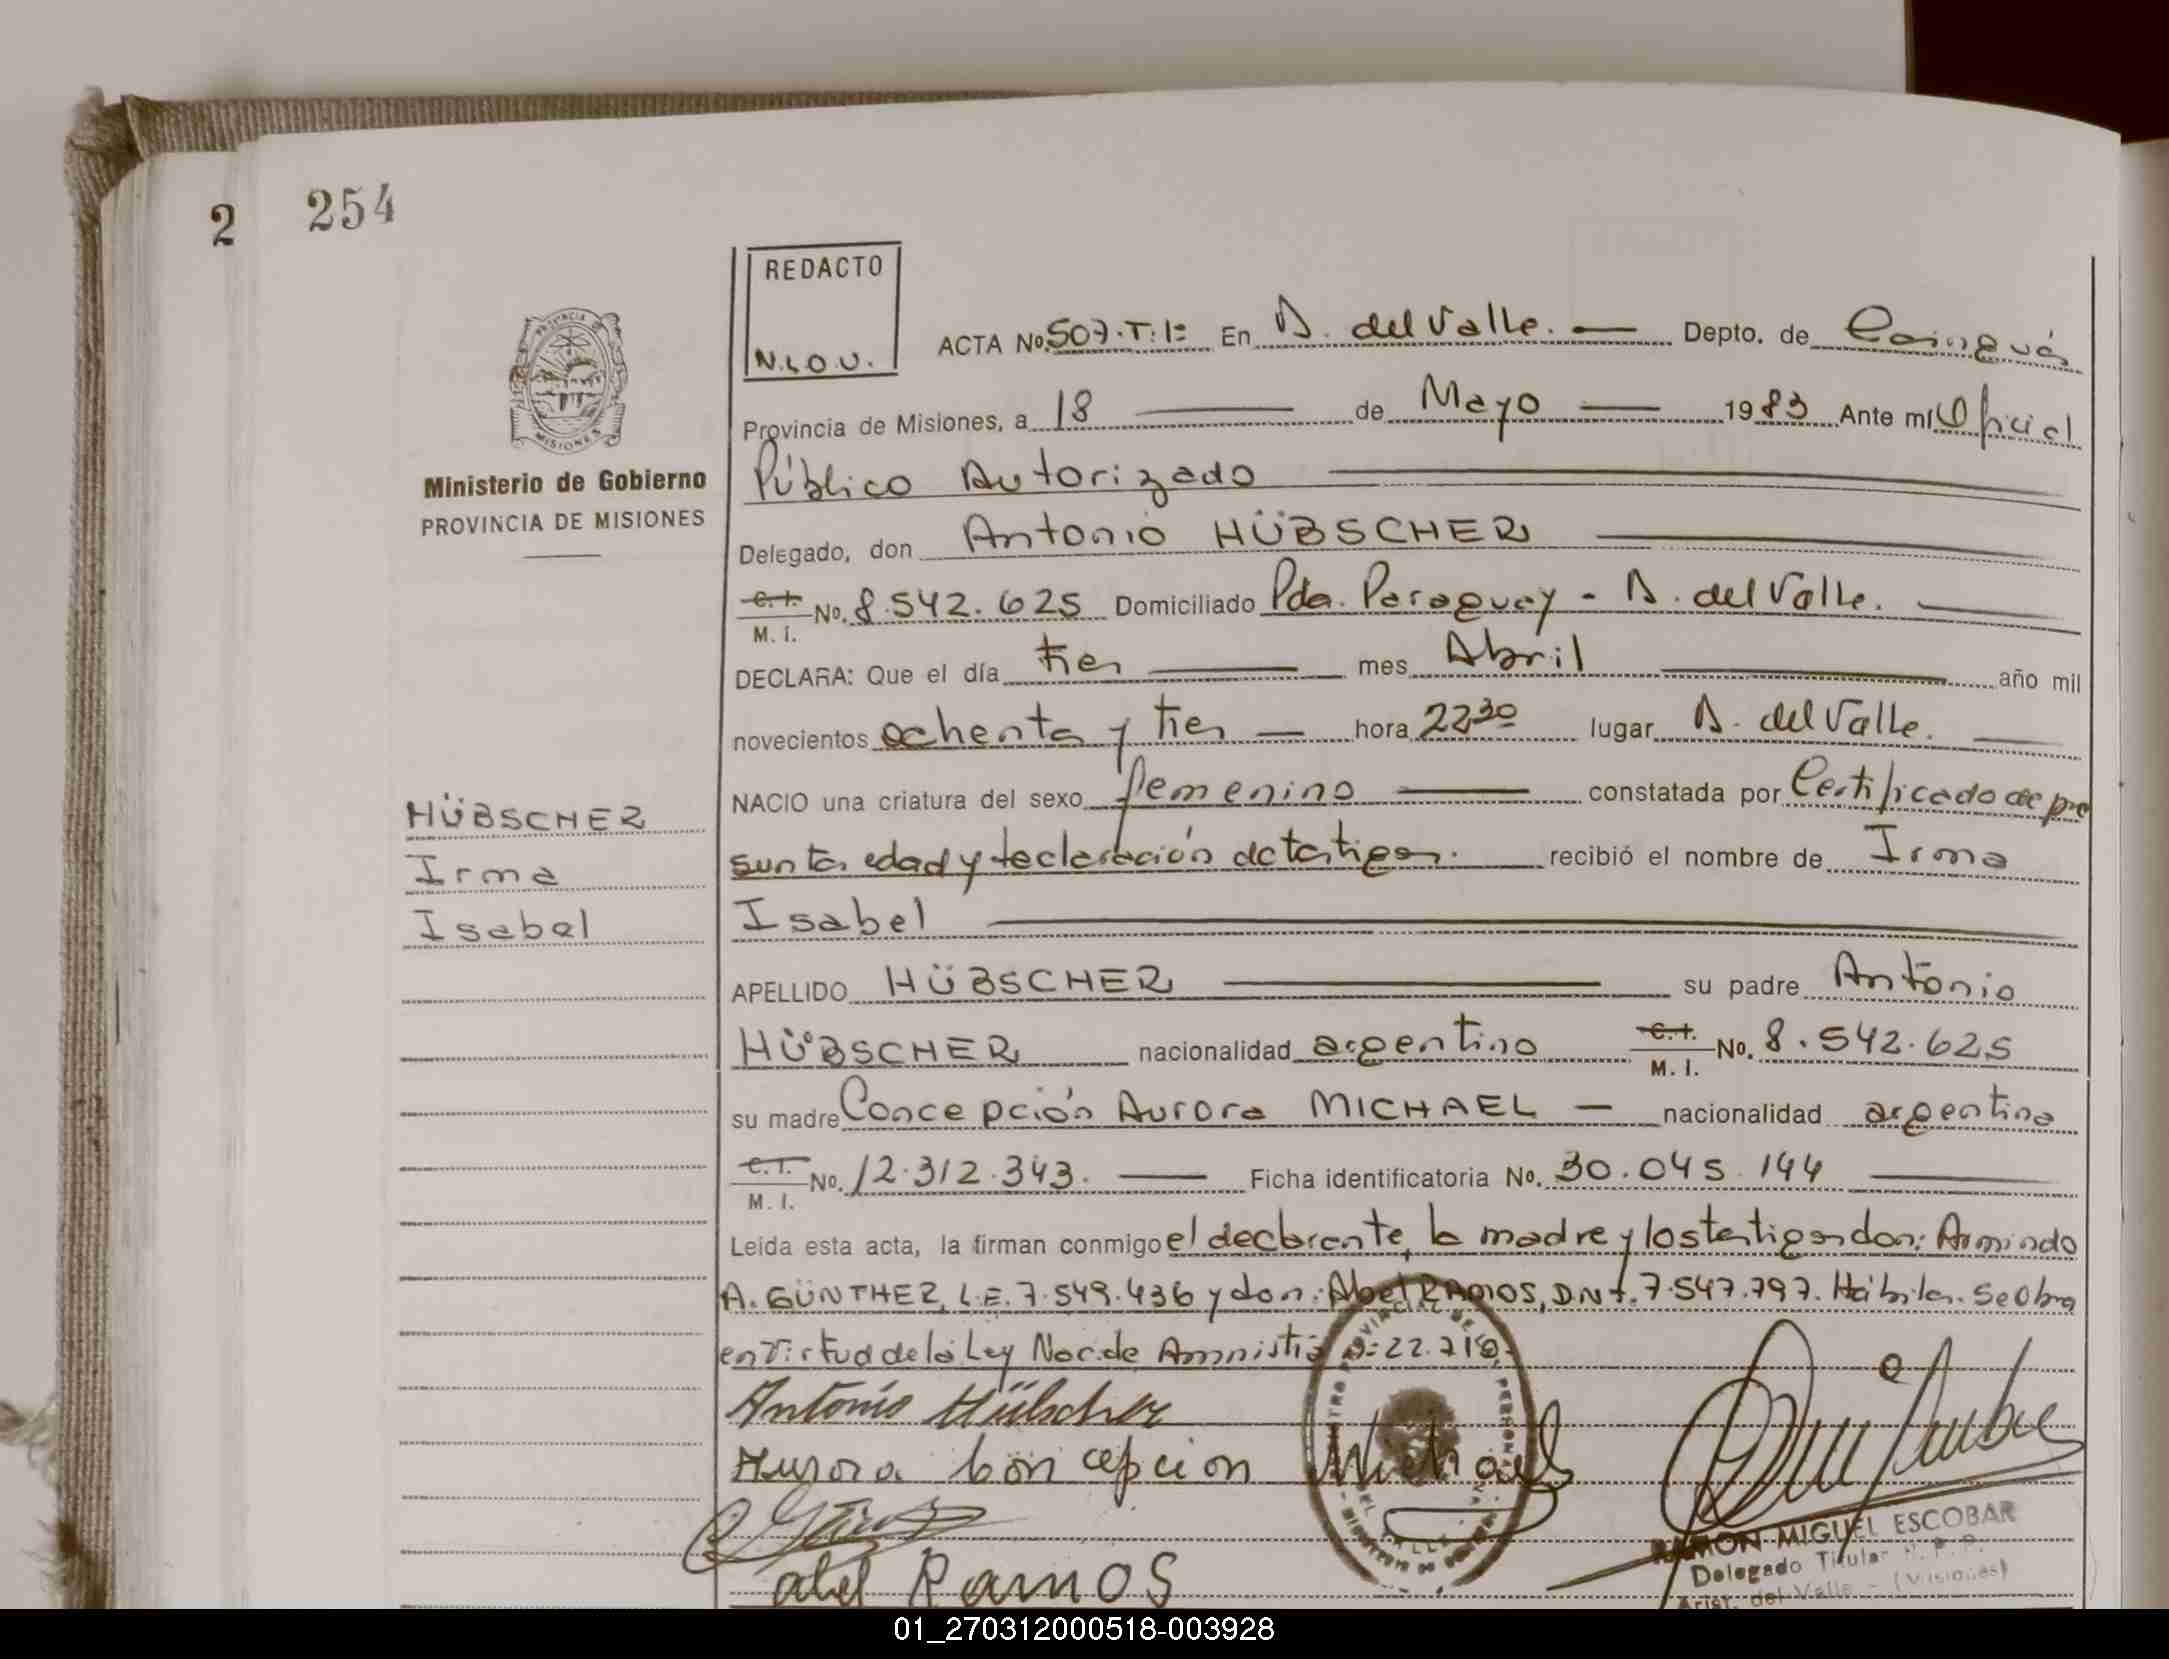 2 254
REDACTO
N.L.O.U.
ACTA No. 507.T:1º En A. del Valle. Depto. de Cainguás
Provincia de Misiones, a 18 de Mayo 1983 Ante mí Oficial
Ministerio de Gobierno
PROVINCIA DE MISIONES
Público Autorizado
Delegado, don Antonio HÜBSCHER
C.I. M.I. No. 8.542.625 Domiciliado Pda. Paraguay - A. del Valle.
DECLARA: Que el día tres mes Abril año mil
novecientos ochenta y tres hora 22³⁰ lugar A. del Valle.
NACIO una criatura del sexo femenino constatada por Certificado de pre
HÜBSCHER
Irma
Isabel
sunta edad y declaración de testigos. recibió el nombre de Irma
Isabel
APELLIDO HÜBSCHER su padre Antonio
HÜBSCHER nacionalidad argentino C.I. M.I. No. 8.542.625
su madre Concepción Aurora MICHAEL nacionalidad argentina
C.I. M.I. No. 12.312.343. Ficha identificatoria No. 30.045.144
Leída esta acta, la firman conmigo el declarante, la madre y los testigos don: Armindo
A. GÜNTHER, L.E. 7.549.436 y don: Abel RAMOS, DNI. 7.547.797. Hábiles. Se obra
en virtud de la Ley Nac. de Amnistía 22.718.
Antonio Hübscher
Aurora Concepcion Michael
abel Ramos
RAMON MIGUEL ESCOBAR
Delegado Titular R. P. P.
Arist. del Valle - (Misiones)
01_270312000518-003928